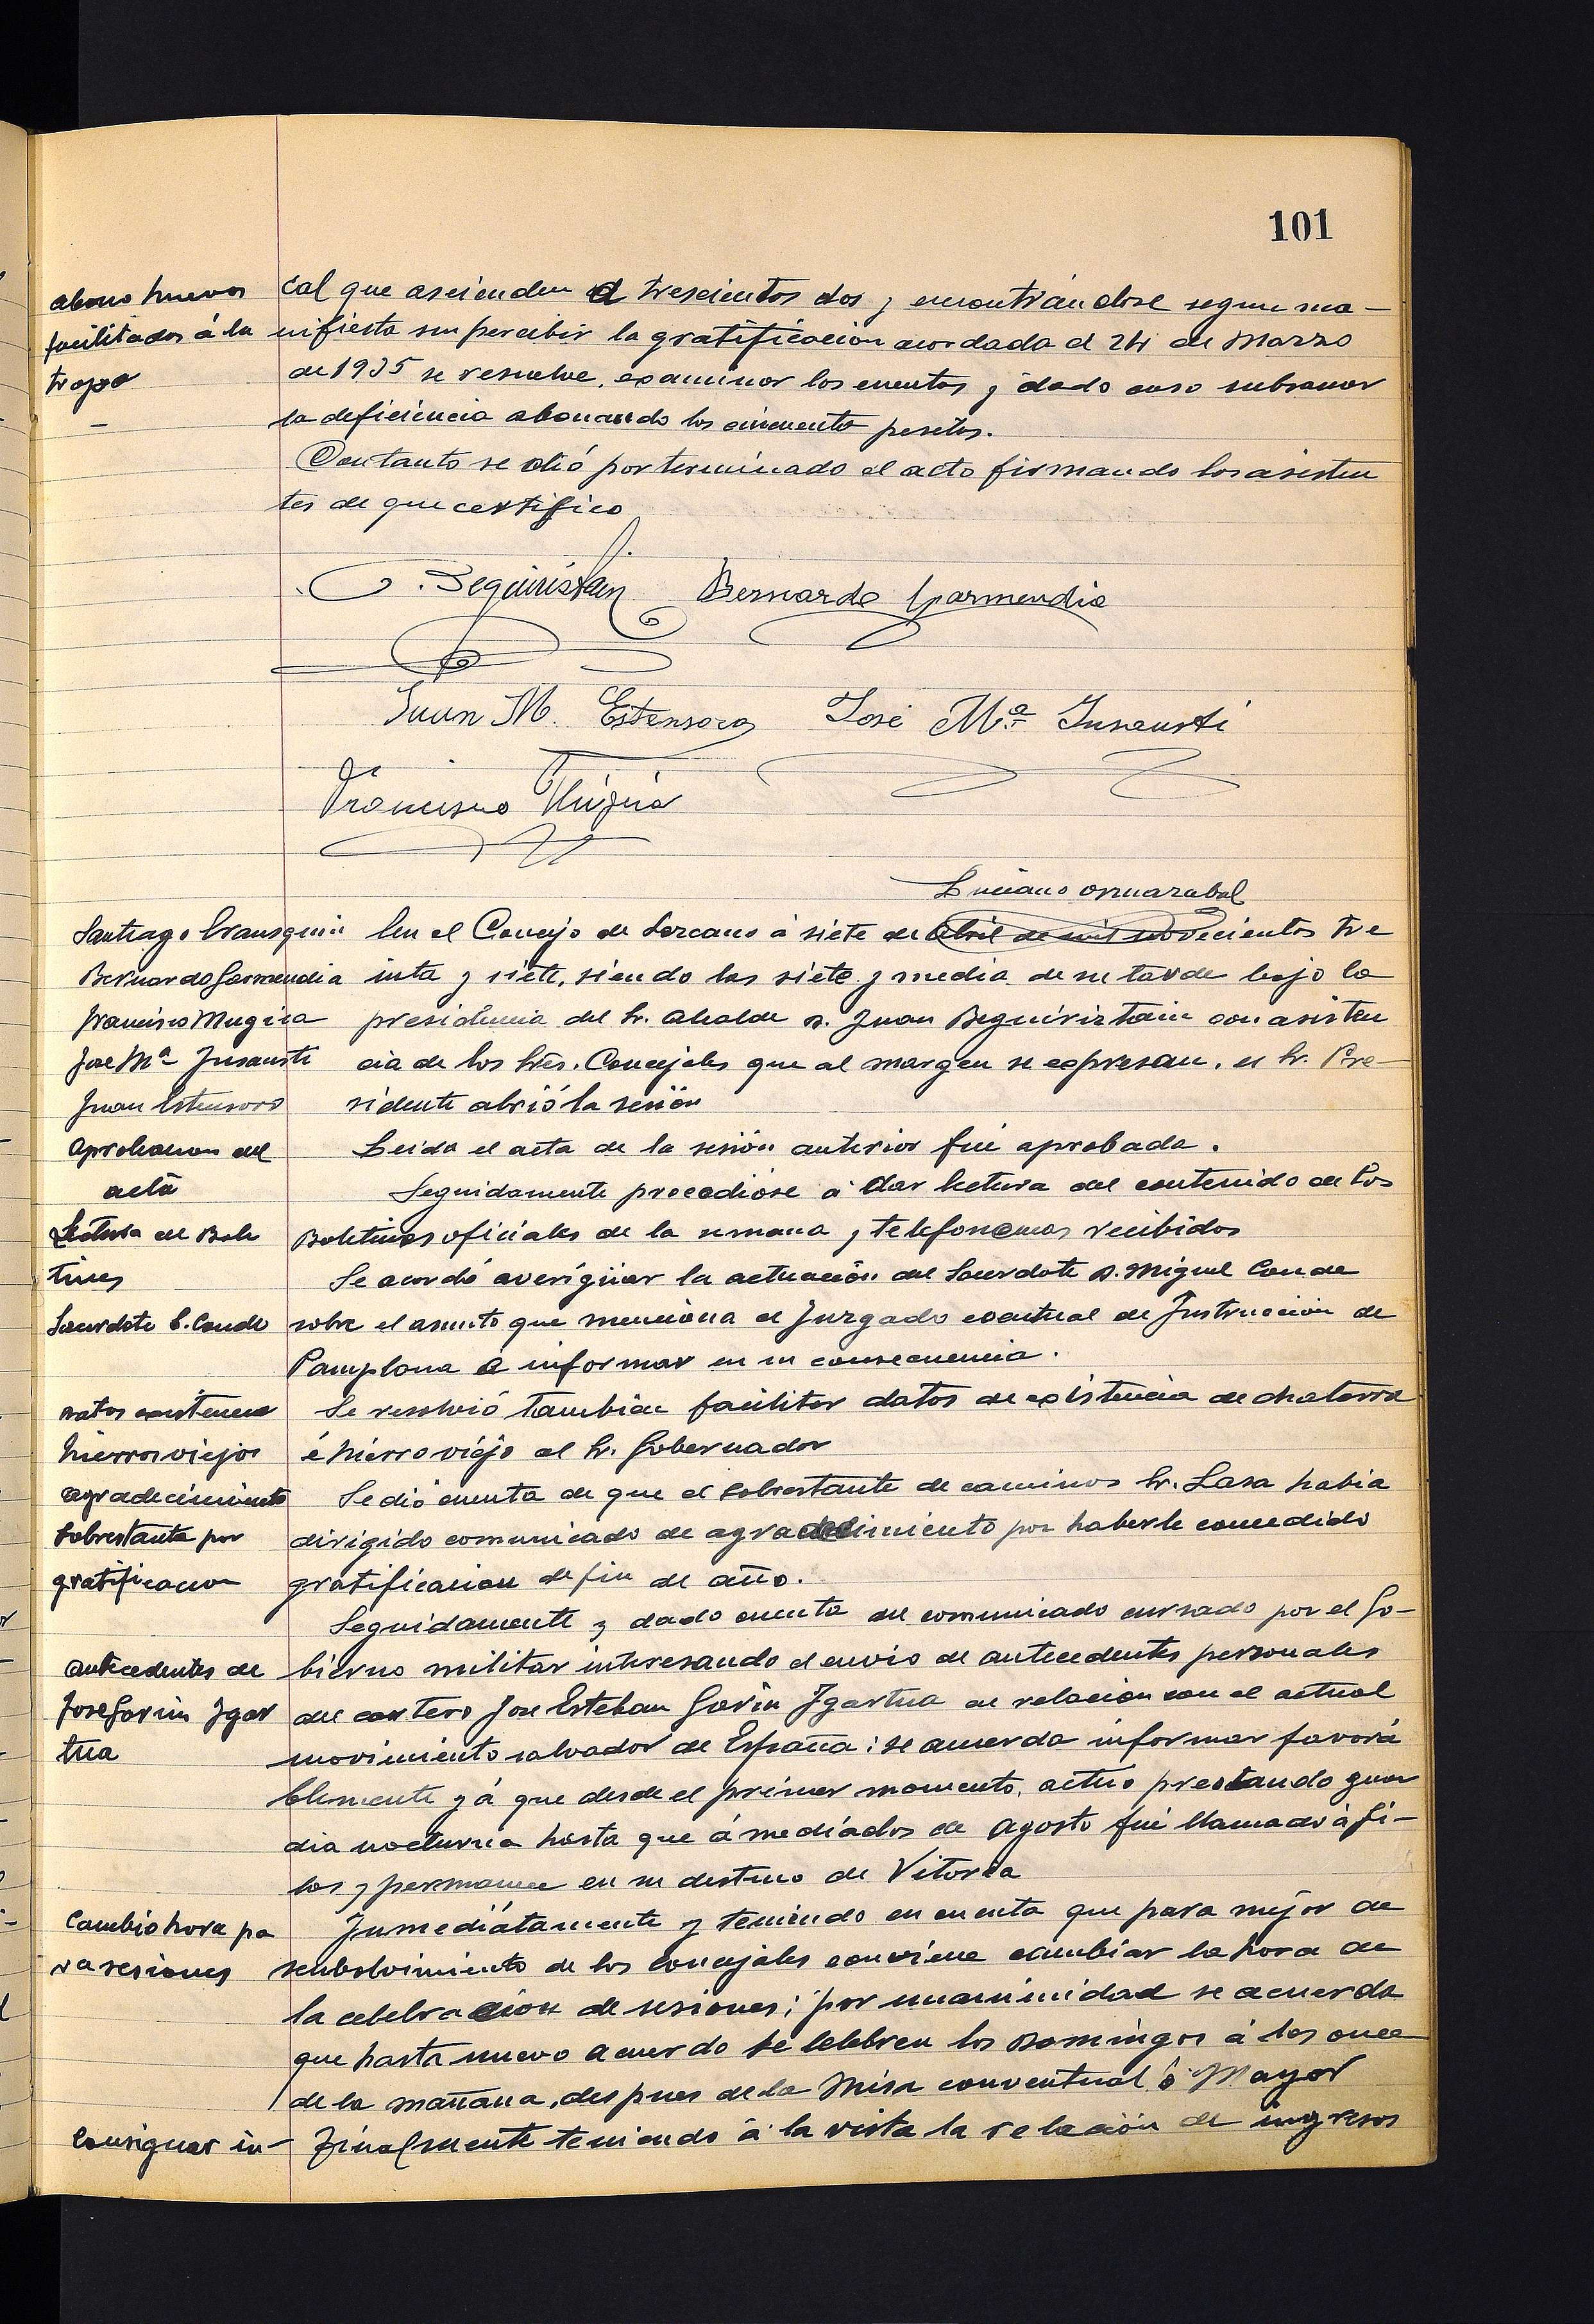 101
abono huevos
facilitados á la
tropa
cal que ascienden a trescientos dos y encontrándose segun ma-
nifiesta sin percibir la gratificacion acordada el 24 de Marzo
de 1935 se resuelve examinar las cuentas y dado caso subsanar
la deficiencia abonando las cincuenta pesetas.
Con tanto se dió por terminado el acto firmando los asisten
tes de que certifico
J. Beguiristain Bernardo Garmendia
Juan M. Estensoro José Mª Insausti
Francisco Mugica
Luciano
Santiago
Bernardo Garmendia
Francisco Mugica
Jose Mª Insausti
Juan Estensoro
En el Concejo de Lazcano á siete de Abril de mil novecientos tre
inta y siete, siendo las siete y media de su tarde bajo la
presidencia del Sr. Alcalde D. Juan Beguiristain con asisten
cia de los Sres. Concejales que al margen se expresan, el Sr. Pre-
sidente abrió la sesión
Aprobacion del
acta
Leida el acta de la sesión anterior fué aprobada.
Lectura de Bole
tines
Seguidamente procedióse á dar lectura del contenido de los
Boletines oficiales de la semana y telefonemas recibidos
Sacerdote S. Conde
Se acordó averigüar la actuación del Sacerdote D. Miguel Conde
sobre el asunto que menciona el Juzgado eventual de Instrucción de
Pamplona é informar en su consecuencia.
Datos existencia
hierros viejos
Se resolvió tambien facilitar datos de existencia de chatarra
é hierro viejo al Sr. Gobernador
agradecimiento
Sobrestante por
gratificacion
Se dió cuenta de que el Sobrestante de caminos Sr. Lasa habia
dirigido comunicado de agradecimiento por haberle concedido
gratificacion de fin de año.
Seguidamente y dado cuenta del comunicado cursado por el Go-
antecedentes de
Jose Garin Igar
tua
bierno militar interesando el envio de antecedentes personales
del cartero Jose Esteban Garin Igartua en relacion con el actual
movimiento salvador de España: se acuerda informar favora
blemente yá que desde el primer momento, actuo prestando guar
dia nocturna hasta que á mediados de Agosto fué llamado á fi-
las y permanece en su destino de Vitoria
Cambio hora pa
ra sesiones
Inmediátamente y teniendo en cuenta que para mejor de
senbolvimiento de los concejales conviene cambiar la hora de
la celebracion de sesiones; por unanimidad se acuerda
que hasta nuevo acuerdo se celebren los Domingos á las once
de la mañana, despues de la Misa conventual ó Mayor
Consignar in-
Finalmente teniendo á la vista la relación de ingresos